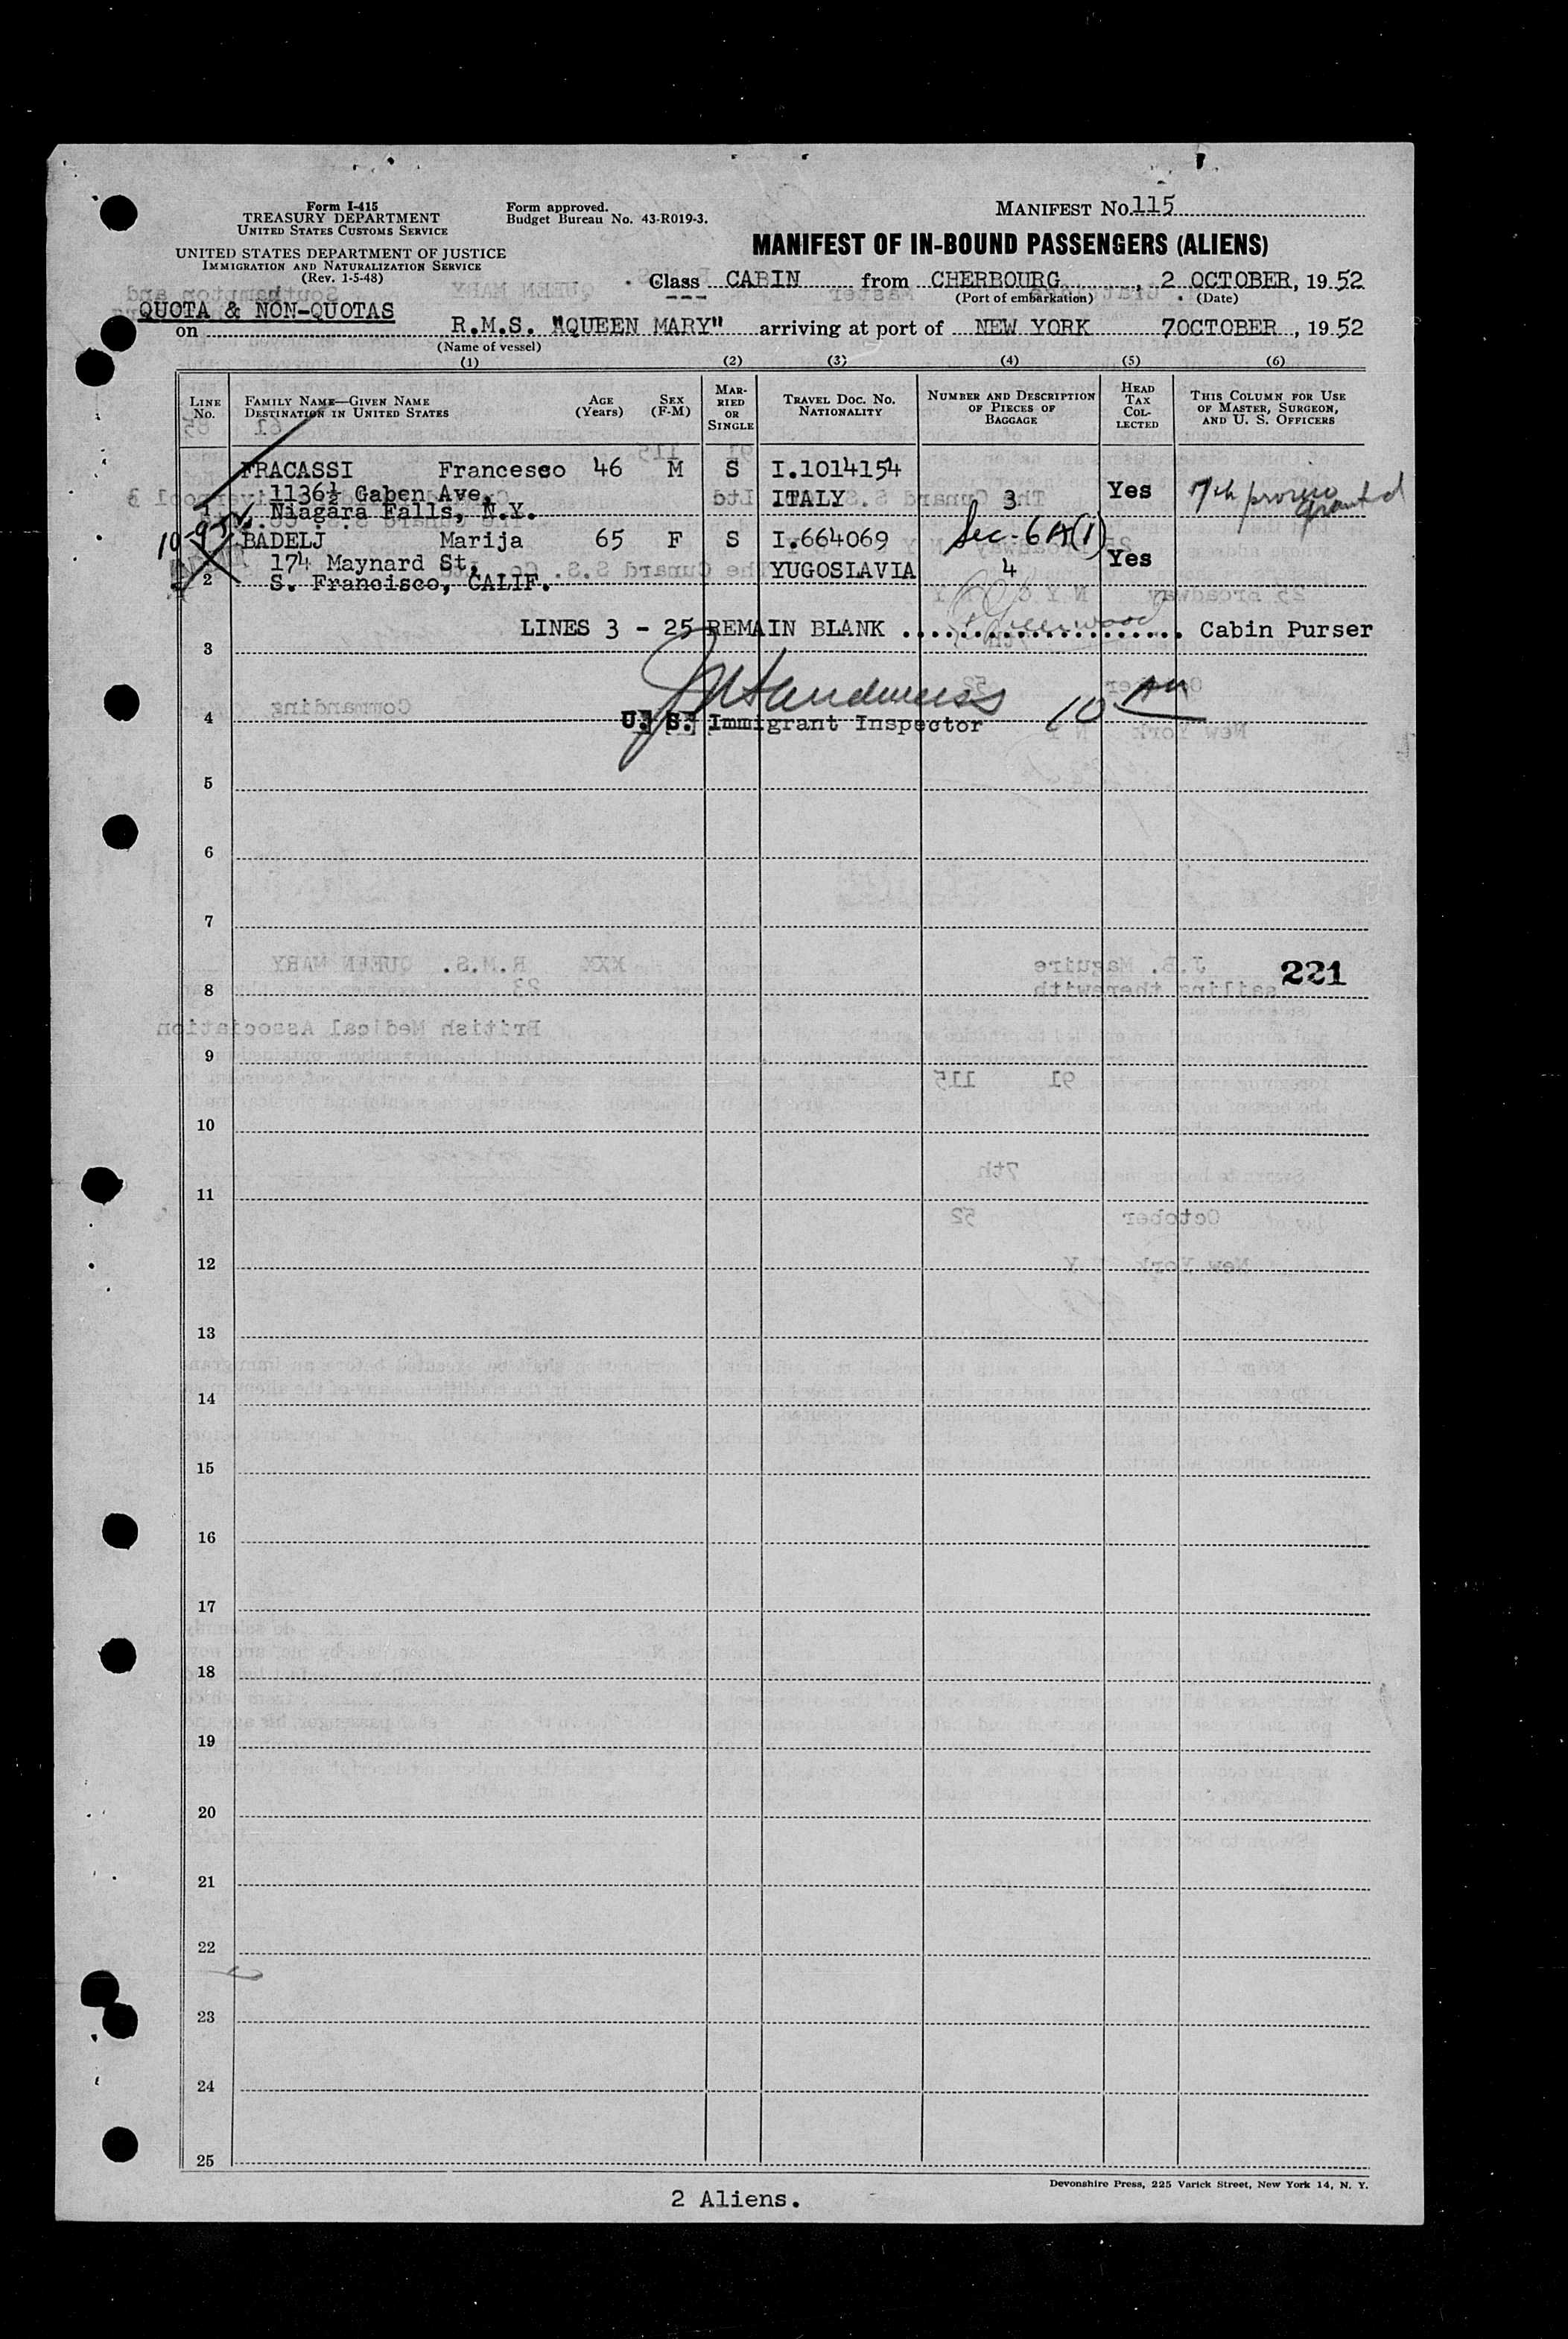 Form I-415
TREASURY DEPARTMENT
UNITED STATES CUSTOMS SERVICE
UNITED STATES DEPARTMENT OF JUSTICE
IMMIGRATION AND NATURALIZATION SERVICE
(Rev. 1-5-48)
Form approved.
Budget Bureau No. 43-R019-3.
MANIFEST No. 115
MANIFEST OF IN-BOUND PASSENGERS (ALIENS)
Class CABIN from CHERBOURG, 2 OCTOBER, 1952
(Port of embarkation) (Date)
QUOTA & NON-QUOTAS
on R.M.S. "QUEEN MARY" arriving at port of NEW YORK 7 OCTOBER, 1952
(Name of vessel)
(1) (2) (3) (4) (5) (6)
LINE No. FAMILY NAME—GIVEN NAME DESTINATION IN UNITED STATES AGE (Years) SEX (F-M) MARRIED OR SINGLE TRAVEL DOC. NO. NATIONALITY NUMBER AND DESCRIPTION OF PIECES OF BAGGAGE HEAD TAX COLLECTED THIS COLUMN FOR USE OF MASTER, SURGEON, AND U. S. OFFICERS
FRACASSI Francesco 46 M S I.1014154
1136½ Gaben Ave, ITALY 3 Yes 7th proviso granted
1 Niagara Falls, N.Y.
BADELJ Marija 65 F S I.664069 Sec-6A(1)
174 Maynard St, YUGOSLAVIA 4 Yes
2 S. Francisco, CALIF.
LINES 3 - 25 REMAIN BLANK ..................... Cabin Purser
3
4 U. S. Immigrant Inspector 10 AM
5
6
7
221
8
9
10
11
12
13
14
15
16
17
18
19
20
21
22
23
24
25
Devonshire Press, 225 Varick Street, New York 14, N. Y.
2 Aliens.